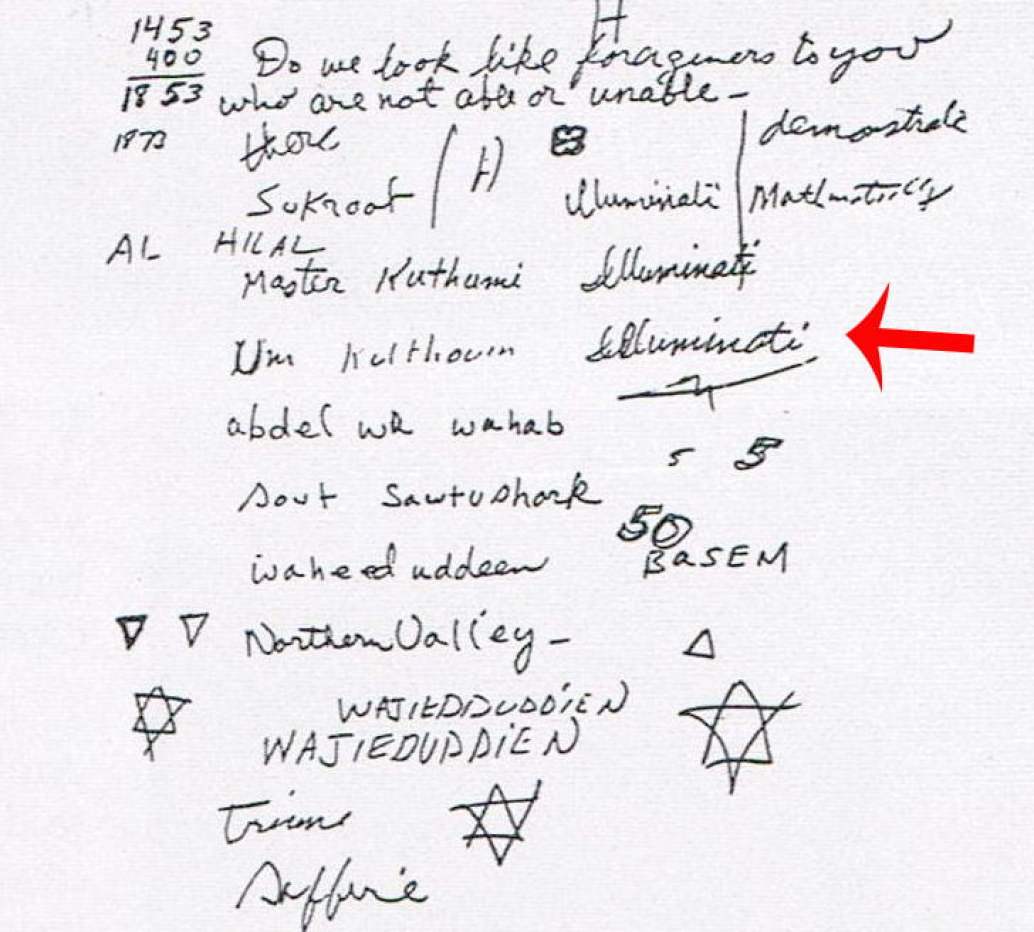 H
1453
400 Do we look like forageners to you
1853 who are not able or unable -
1873 demonstrate
Sukroot (H) Illuminati Mathmatricy
AL HILAL
Master Kuthumi Illuminati
Um Kulthoum Illuminati
abdel wa wahab
5 5
Sout Sawtushark
50
waheed uddeen BASEM
Northern Valley -
WAJIEDDUDDIEN
WAJIEDUDDIEN